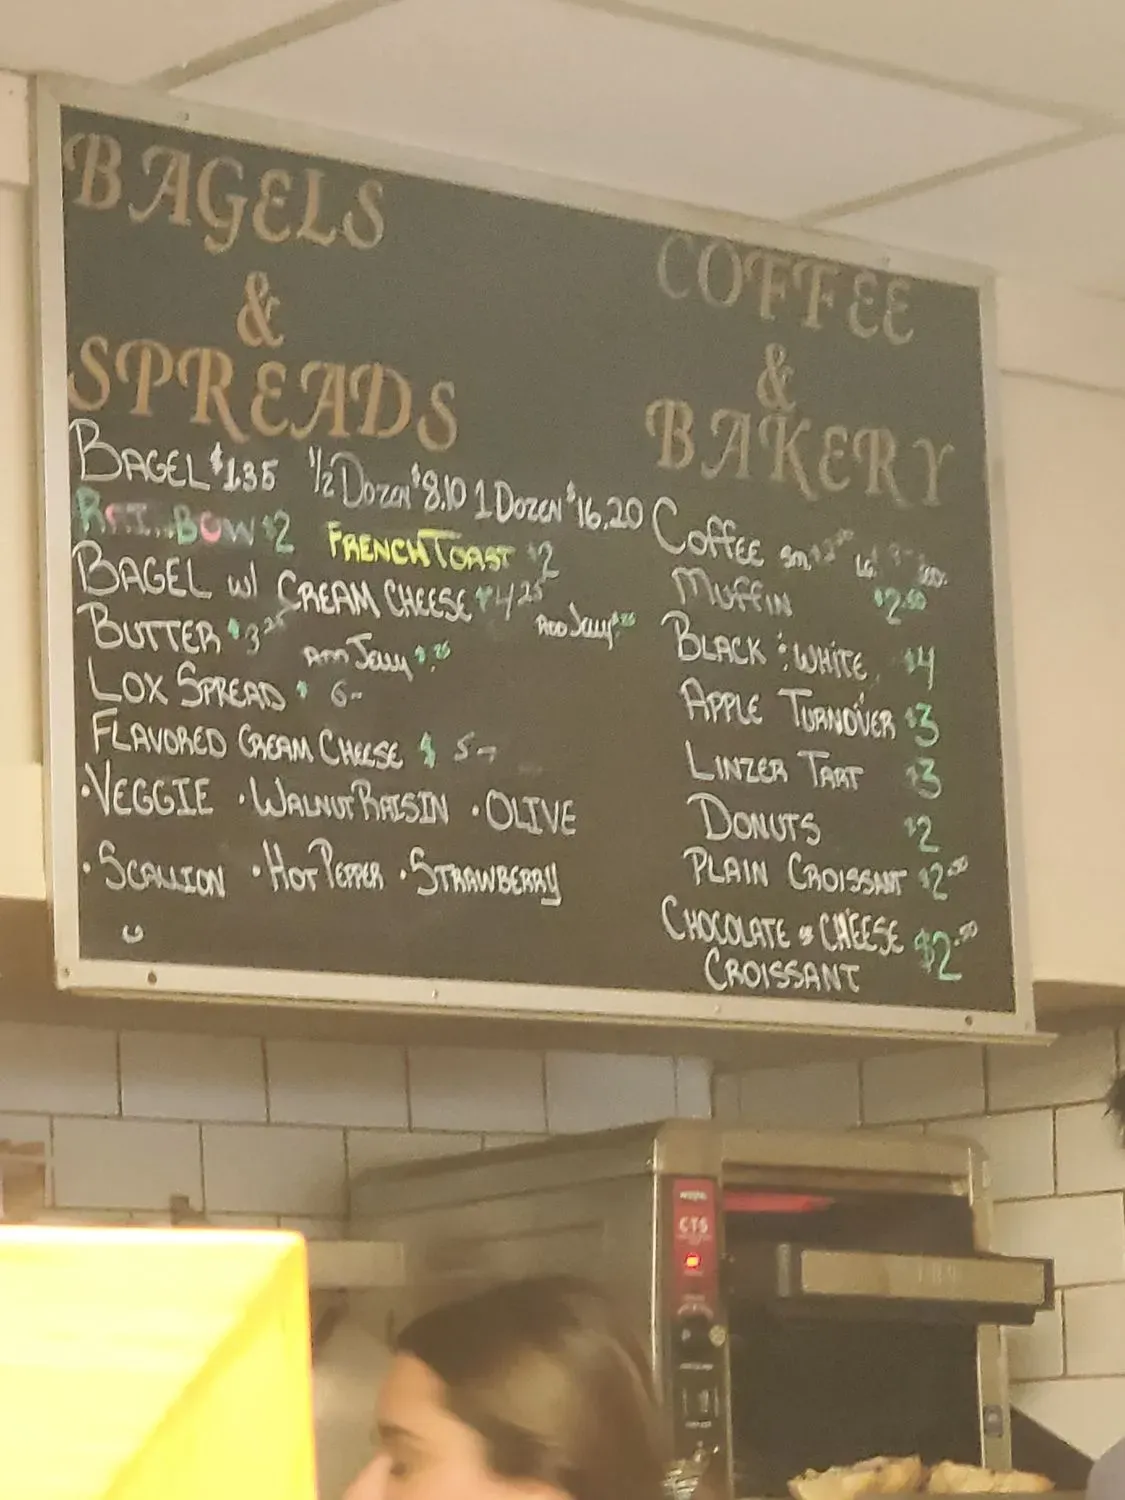 BAGELS
&
SPREADS
BAGEL $1.35 1/2 DOZEN $8.10 1 DOZEN $16.20
RAI..BOW $2 FRENCH TOAST $2
BAGEL w/ CREAM CHEESE $4.25
ADD Jelly $.25
BUTTER $3.25
ADD Jelly $.25
LOX SPREAD $ 6-
FLAVORED CREAM CHEESE $ 5-
•VEGGIE •WALNUT RAISIN •OLIVE
•SCALLION •HOT PEPPER •STRAWBERRY
COFFEE
&
BAKERY
COFFEE sm
MUFFIN $2.50
BLACK & WHITE $4
APPLE TURNOVER $3
LINZER TART $3
DONUTS $2
PLAIN CROISSANT $2.50
CHOCOLATE or CHEESE $2.50
CROISSANT
CTS